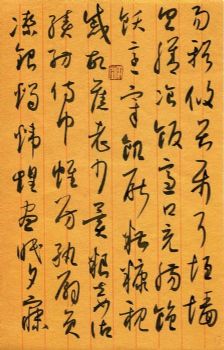 易輶攸畏屬耳垣牆
具膳餐飯適口充腸飽
飫烹宰飢厭糟糠親
戚故舊老少異糧妾御
績紡侍巾帷房紈扇圓
潔銀燭煒煌晝眠夕寐